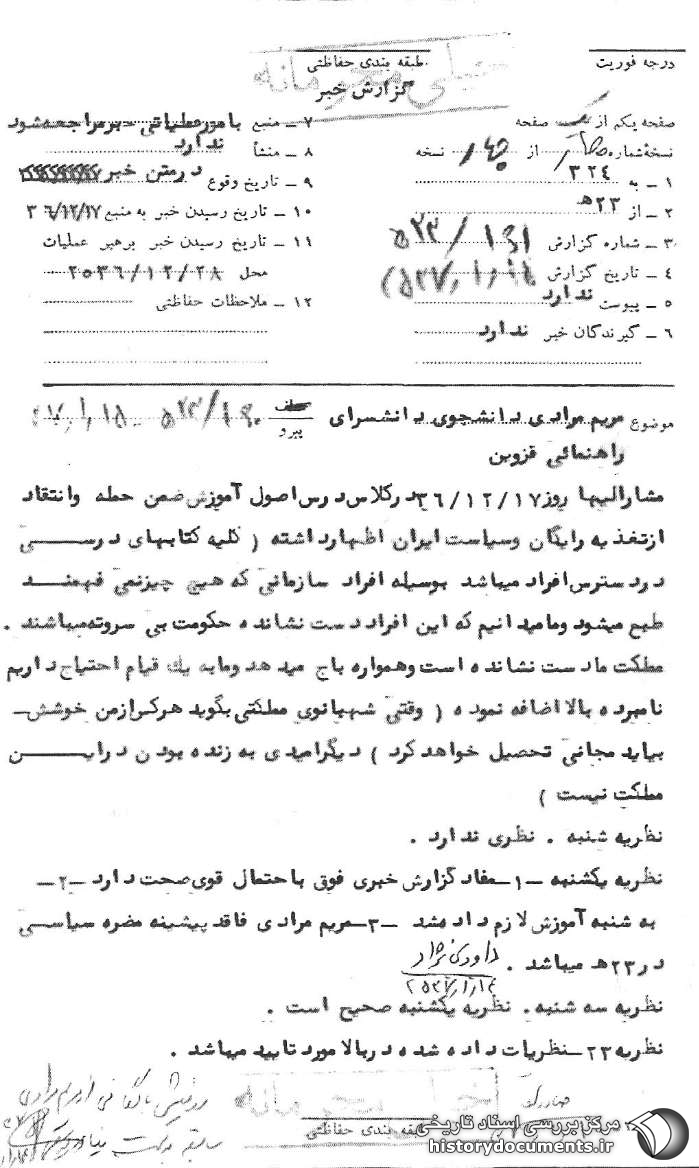 درجه فوریت
طبقه بندی حفاظتی
خیلی محرمانه
گزارش خبر
صفحه یکم از یک صفحه
نسخه شماره چهار از چهار نسخه
۱ ـ به ۳۲۴
۲ ـ از ۲۳ه
۳ ـ شماره گزارش ۵۲۳/۱۶۱
۴ ـ تاریخ گزارش
۵ ـ پیوست ندارد
۶ ـ گیرندگان خبر ندارد
۷ ـ منبع با مورعطیاتی رهبرمراجعه شود
۸ ـ منشأ ندارد
۹ ـ تاریخ وقوع درمتن خبر
۱۰ ـ تاریخ رسیدن خبر به منبع ۳۶/۱۲/۱۷
۱۱ ـ تاریخ رسیدن خبر برهبر عملیات
محل ۲۰۳۶/۱۲/۲۸
۱۲ ـ ملاحظات حفاظتی
موضوع مریم مرادی دانشجوی دانشسرای
راهنمائی قزوین
عطف
پیرو
مشارالیها روز ۳۶/۱۲/۱۷ درکلاس درس اصول آموزش ضمن حمله وانتقاد
ازتغذیه رایگان وسیاست ایران اظهارداشته ( کلیه کتابهای درسـی
دردسترس افراد میباشد بوسیله افراد سازمانی که هیچ چیزنمی فهمند
طبع میشود ومامیدانیم که این افراد دست نشانده حکومت بی سروته میباشند .
مملکت مادست نشانده است وهمواره باج میدهد ومابه یك قیام احتیاج داریم
نامبرده بالا اضافه نموده ( وقتی شهبانوی مملکتی بگوید هرکس ازمن خوشش ـ
بیاید مجانی تحصیل خواهدکرد ) دیگرامیدی به زنده بودن درایـن
مملکت نیست )
نظریه شنبه . نظری ندارد .
نظریه یکشنبه ـ۱ـ مفاد گزارش خبری فوق باحتمال قوی صحت دارد ـ۲ـ
به شنبه آموزش لازم داده شد ـ۳ـ مریم مرادی فاقد پیشینه مضره سیاسی
در ۲۳ه میباشد . داودی نژاد
نظریه سه شنبه . نظریه یکشنبه صحیح است .
نظریه ۲۳ ـ نظریات داده شده دربالا مورد تایید میباشد .
طبقه بندی حفاظتی
مرکز بررسی اسناد تاریخی
historydocuments.ir